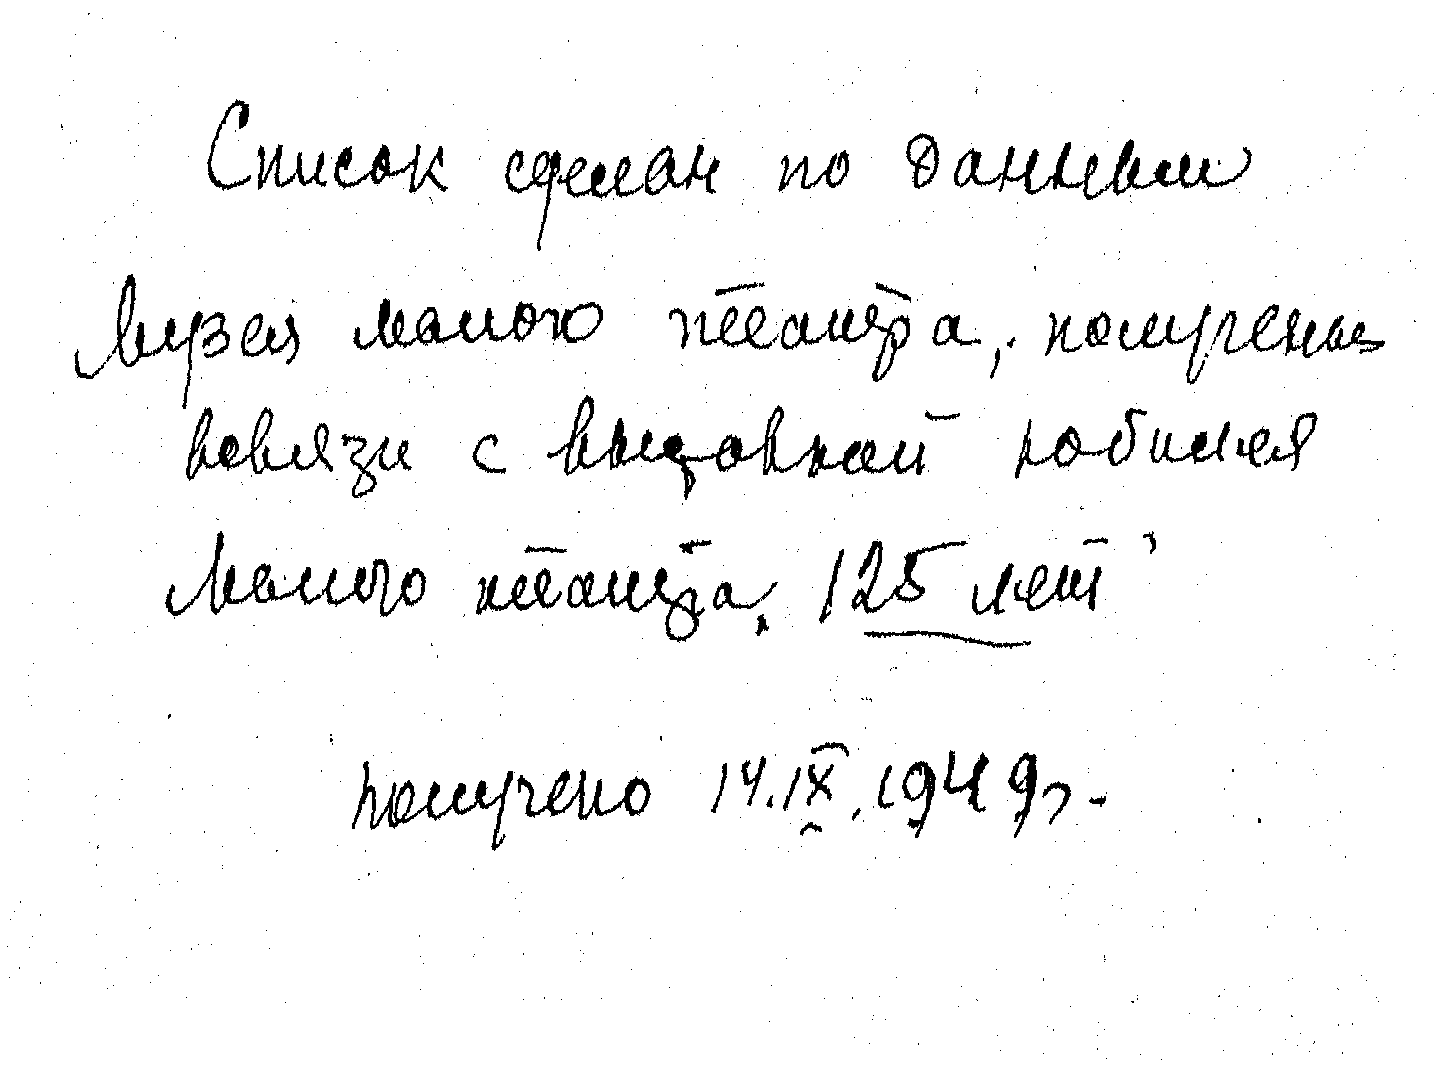 Список сделан по данным
Музея Малого театра, получены
всвязи с выставкой юбилея
Малого театра, 125 лет
получено 14.IX.1949г.